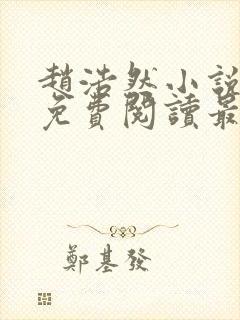 趙浩然小說
免費閱讀最
鄭基發